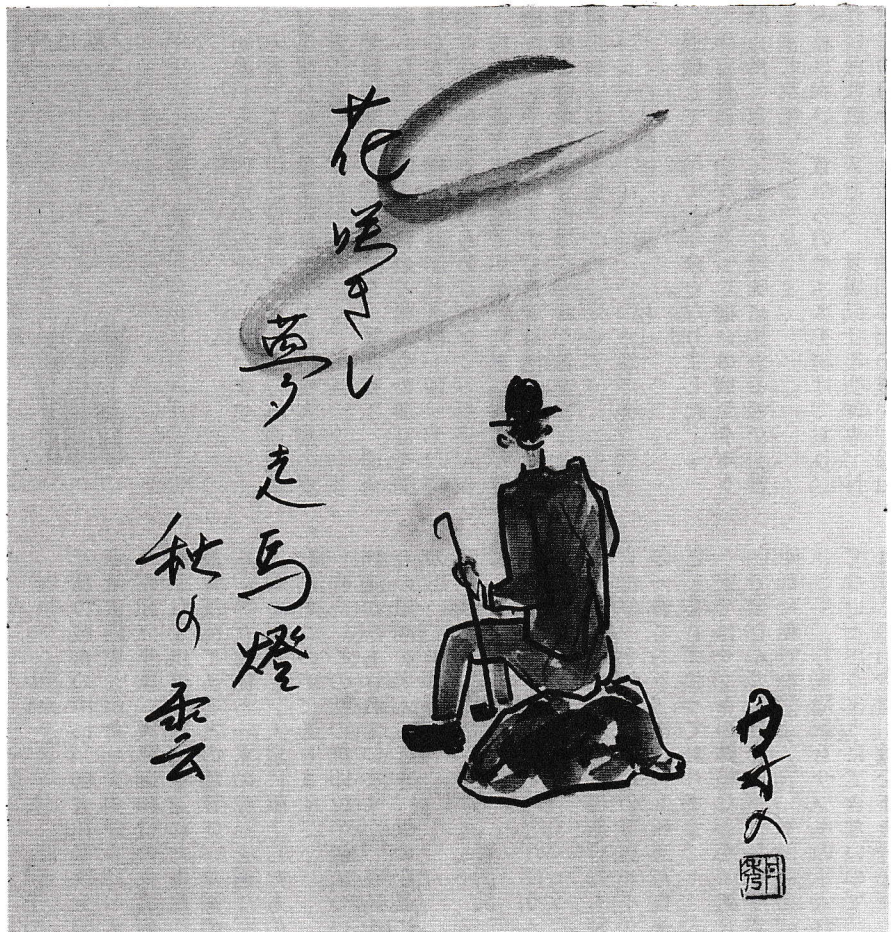 花咲きし
夢走馬燈
秋の雲